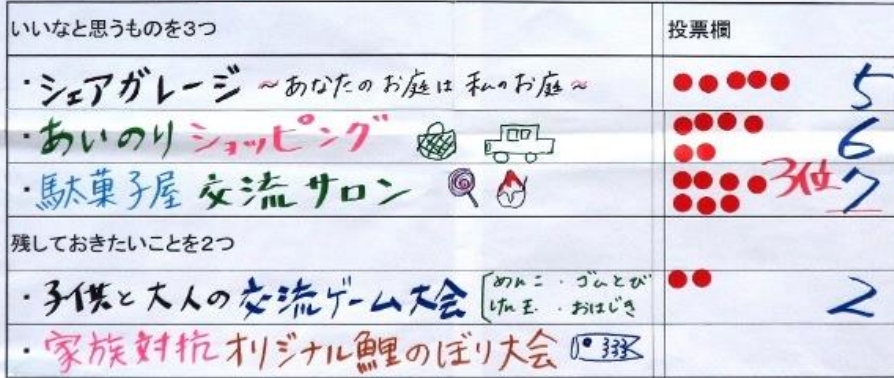 いいなと思うものを3つ 投票欄
・シェアガレージ ～あなたのお庭は私のお庭～ 5
・あいのりショッピング 6
・駄菓子屋 交流サロン 3位 7
残しておきたいことを2つ
・子供と大人の交流ゲーム大会 めんこ・ゴムとび 2
けん玉・おはじき
・家族対抗オリジナル鯉のぼり大会